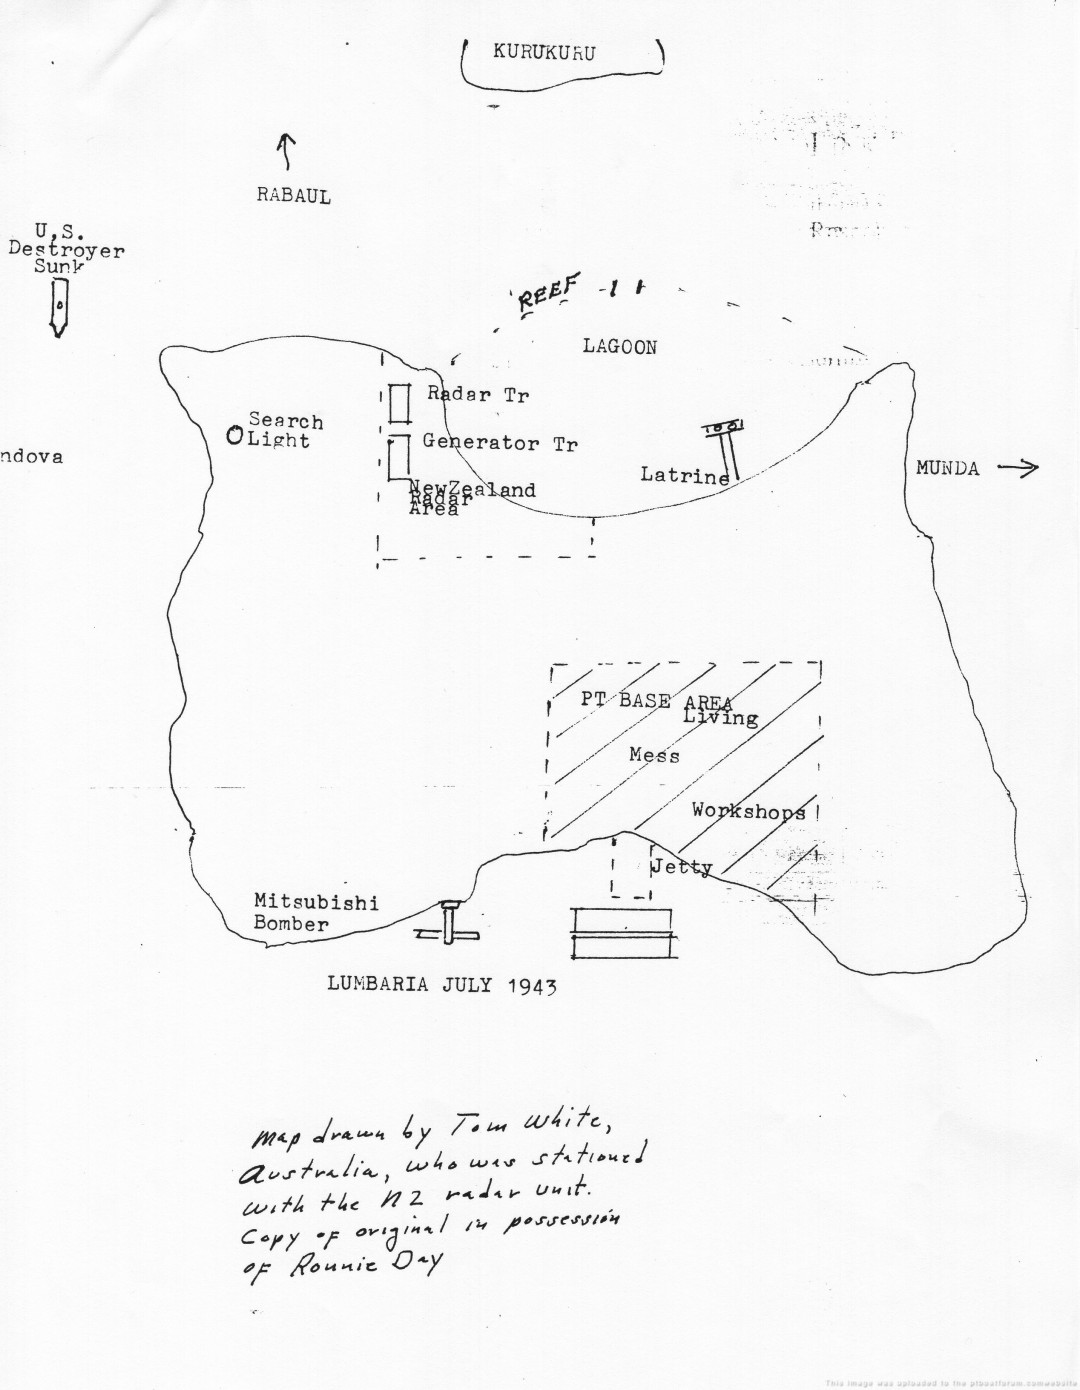 KURUKURU
RABAUL
U.S.
Destroyer
Sunk
REEF
LAGOON
Radar Tr
Search
Light
Generator Tr
ndova
MUNDA
Latrine
NewZealand
Radar
Area
PT BASE AREA
Living
Mess
Workshops
Jetty
Mitsubishi
Bomber
LUMBARIA JULY 1943
Map drawn by Tom White,
Australia, who was stationed
with the NZ radar unit.
Copy of original in possession
of Ronnie Day
This image was uploaded to the ptboatforum.comwebsite